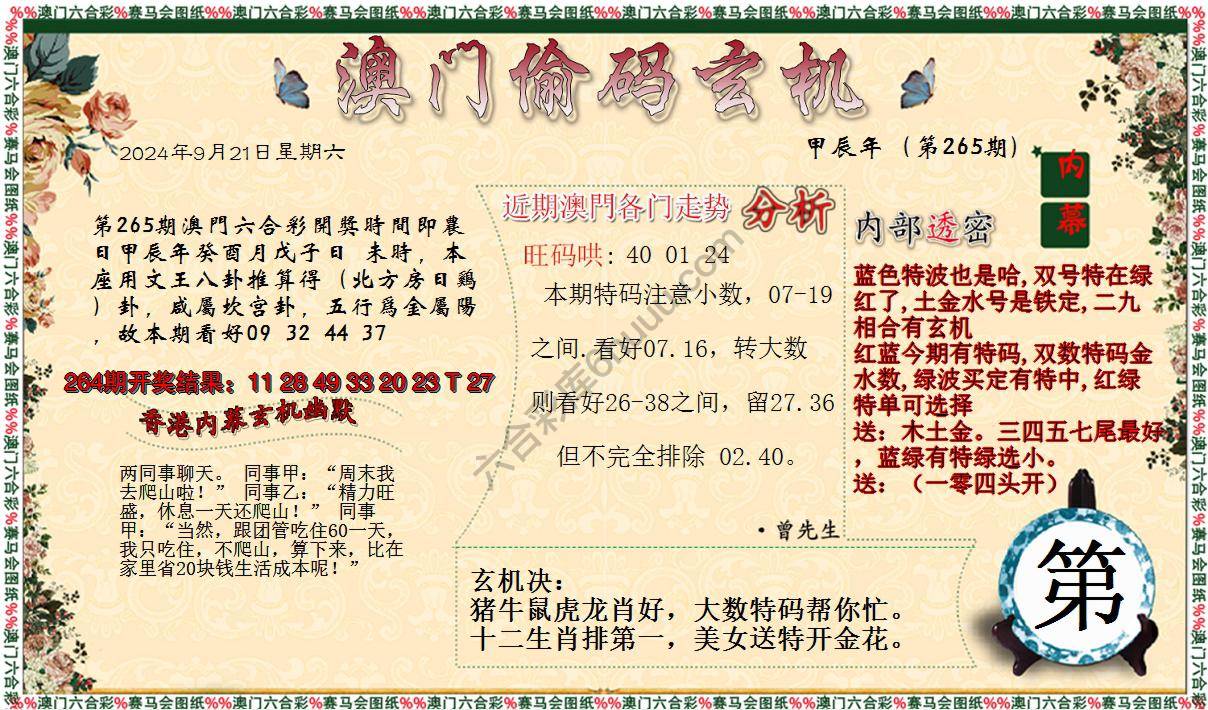 %%澳门六合彩%赛马会图纸%%澳门六合彩%赛马会图纸%%澳门六合彩%赛马会图纸%%澳门六合彩%赛马会图纸%%澳门六合彩%赛马会图纸%%澳门六合彩%赛马会图纸%%澳门六合彩%赛马会图纸%%
澳门偷码玄机
2024年9月21日星期六
甲辰年（第265期）
内
幕
第265期澳門六合彩開獎時間即農
日甲辰年癸酉月戊子日 未時，本
座用文王八卦推算得（北方房日鷄
）卦，咸屬坎宫卦，五行爲金屬陽
，故本期看好09 32 44 37
264期开奖结果：11 28 49 33 20 23 T 27
香港内幕玄机幽默
两同事聊天。 同事甲：“周末我
去爬山啦！” 同事乙：“精力旺
盛，休息一天还爬山！” 同事
甲：“当然，跟团管吃住60一天，
我只吃住，不爬山，算下来，比在
家里省20块钱生活成本呢！”
近期澳門各门走势 分析
旺码哄: 40 01 24
本期特码注意小数，07-19
之间.看好07.16，转大数
则看好26-38之间，留27.36
但不完全排除 02.40。
·曾先生
内部透密
蓝色特波也是哈,双号特在绿
红了,土金水号是铁定,二九
相合有玄机
红蓝今期有特码,双数特码金
水数,绿波买定有特中,红绿
特单可选择
送：木土金。三四五七尾最好
，蓝绿有特绿选小。
送：（一零四头开）
玄机决：
猪牛鼠虎龙肖好，大数特码帮你忙。
十二生肖排第一，美女送特开金花。
第
%%澳门六合彩%赛马会图纸%%澳门六合彩%赛马会图纸%%澳门六合彩%赛马会图纸%%澳门六合彩%赛马会图纸%%澳门六合彩%赛马会图纸%%澳门六合彩%赛马会图纸%%澳门六合彩%赛马会图纸%%